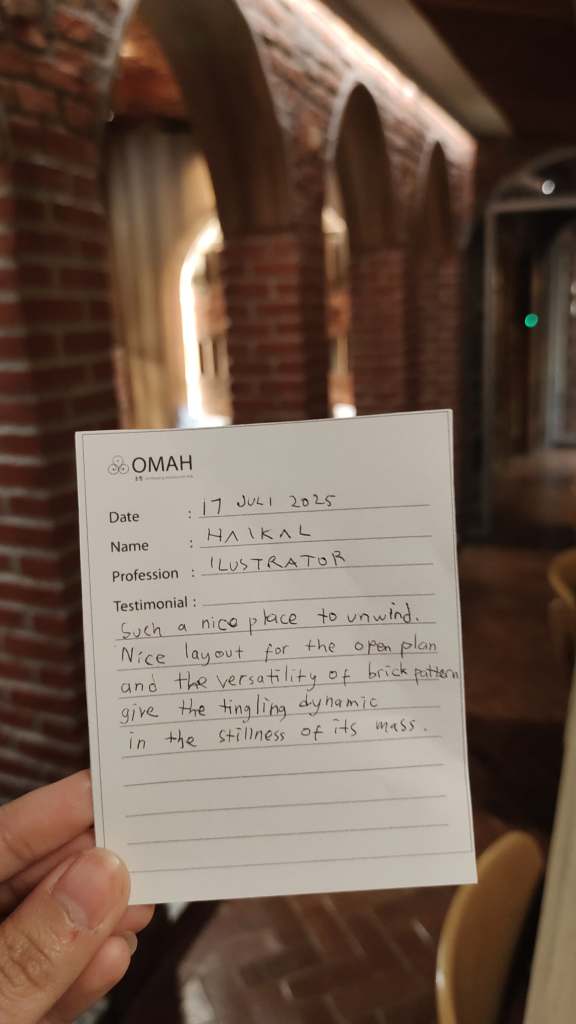 OMAH
Date : 17 JULI 2025
Name : HAIKAL
Profession : ILUSTRATOR
Testimonial :
Such a nice place to unwind.
Nice layout for the open plan
and the versatility of brick pattern
give the tingling dynamic
in the stillness of its mass.